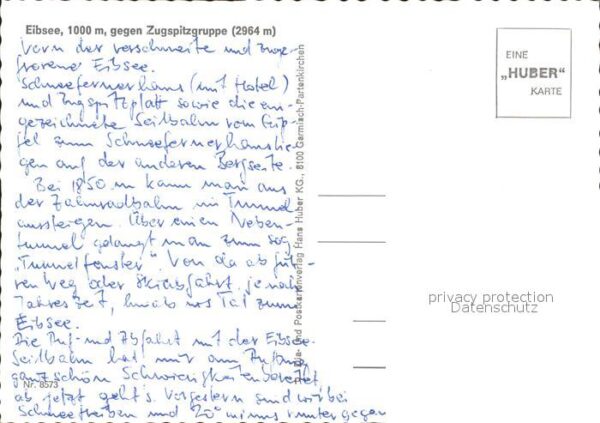 Eibsee, 1000 m, gegen Zugspitzgruppe (2964 m)
Vorn der verschneite und zuge-
frorene Eibsee.
Schneefernerhaus (mit Hotel)
und Zugspitzplatt sowie die ein-
gezeichnete Seilbahn vom Gip-
fel zum Schneefernerhaus lie-
gen auf der anderen Bergseite.
Bei 1850 m kann man aus
der Zahnradbahn im Tunnel
aussteigen. Über einen Neben-
tunnel gelangt man zum sog.
"Tunnelfenster". Von da ab füh-
ren Weg oder Skiabfahrt, je nach
Jahreszeit, hinab ins Tal zum
Eibsee.
Die Auf- und Abfahrt mit der Eibsee-
Seilbahn hat mir am Anfang
ganz schön Schwierigkeiten bereitet
ab jetzt geht's. Vorgestern sind wir bei
Schneetreiben und 20° minus runter gegan
Nr. 8573
- und Postkartenverlag Hans Huber KG., 8100 Garmisch-Partenkirchen
EINE
„HUBER"
KARTE
privacy protection
Datenschutz